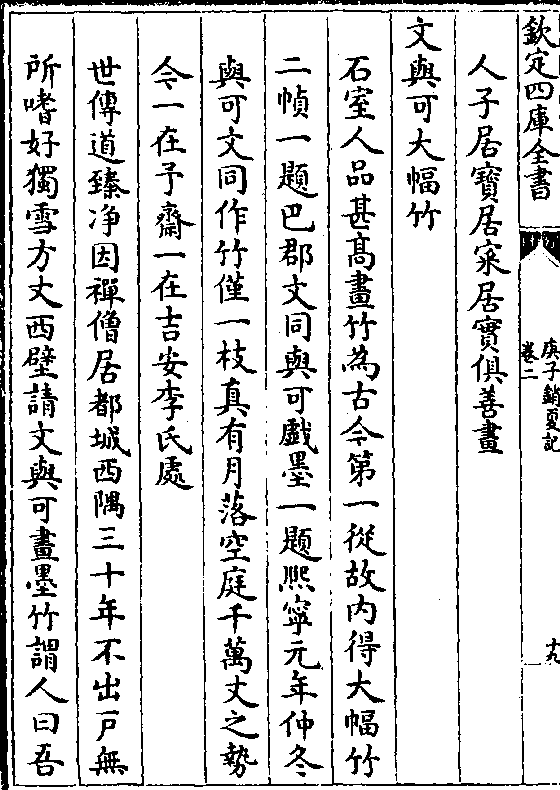 欽定四庫全書
庚子銷夏記
卷二
十九
人子居寶居寀居實俱善畫
文與可大幅竹
石室人品甚高畫竹為古今第一從故内得大幅竹
二幀一題巴郡文同與可戲墨一題熈寧元年仲冬
與可文同作竹僅一枝真有月落空庭千萬丈之勢
今一在予齋一在吉安李氏處
世傳道臻净因禪僧居都城西隅三十年不出戸無
所嗜好獨雪方丈西壁請文與可畫墨竹謂人曰吾